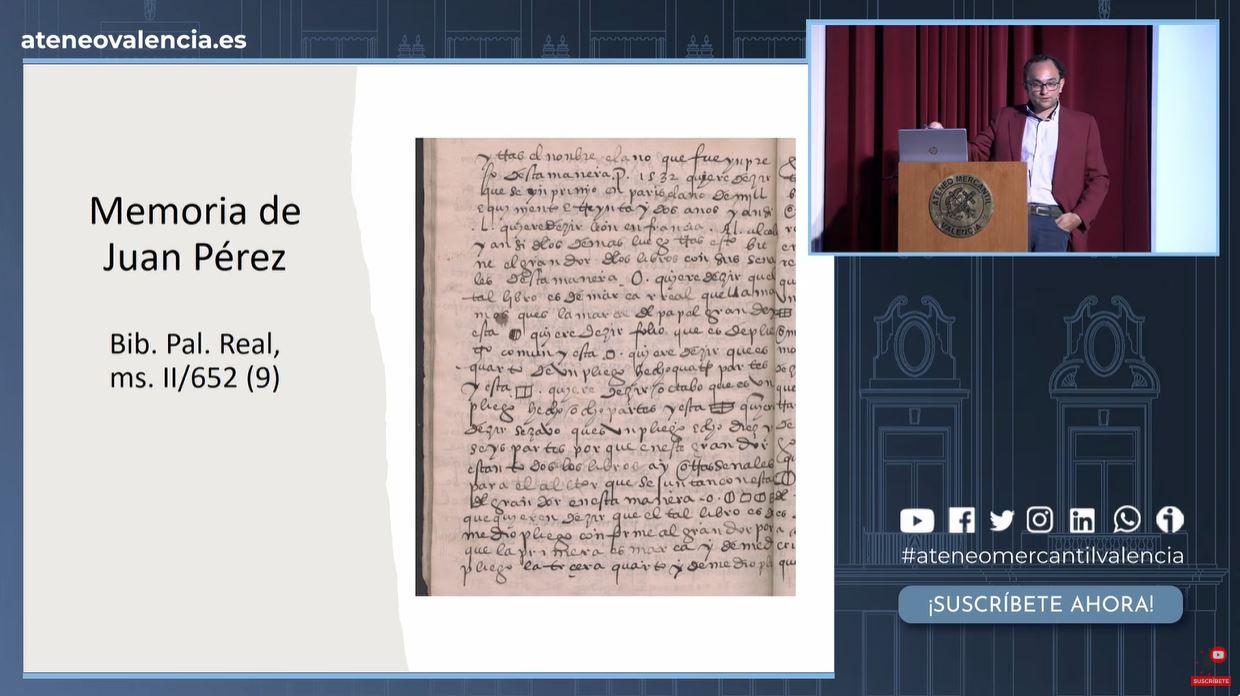 ateneovalencia.es
Memoria de
Juan Pérez
Bib. Pal. Real,
ms. II/652 (9)
y ttas el nonbre el año que fue ynpre
so. desta manera. P. 1532 quiere dezir
que se ynprimio en paris el año de mill
e quinientos e treynta y dos anos y ansi
.L. quiere dezir leon en francia. Al. alcala
y ansi de los demas luego ttas esto bie
ne el grandor de los libros con sus sena
les desta manera. O. quiere dezir que
tal libro es de marca rreal que llama
mos ques la marca del papel grande y
esta quiere dezir folio que es de plie
go comun y esta .□. quiere dezir que es
quarto de un pliego hecho quatro partes
y esta quiere dezir octabo que es un
pliego hecho ocho partes y esta quiere
dezir sezavo ques un pliego echo diez y
seys partes por que en este grandor
estan todos los libros ay ottas senales
para el alctor que se juntan con esta
del grandor en esta manera
que quieren dezir que el tal libro es de
medio pliego conforme al grandor por
que la primera es marca y de medio
pliego la tercera quarto y de medio pli
ATENEO MERCANTIL
VALENCIA
hp
#ateneomercantilvalencia
¡SUSCRÍBETE AHORA!
SUSCRÍBETE